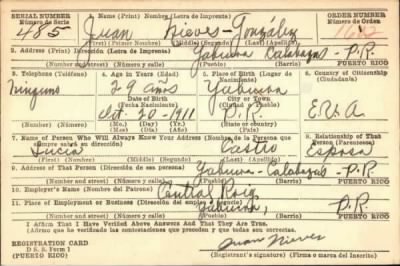 SERIAL NUMBER 1. Name (Print) Nombre (Letra de Imprenta) ORDER NUMBER
Número de Serie Número de Orden
485 Juan Nieves-González
(First) (Primer Nombre) (Middle) (Segundo Nombre) (Last) (Apellido)
2. Address (Print) Dirección (Letra de Imprenta)
Yabucoa Calabazas - P.R.
Number and street) (Número y calle) (Municipality) (Pueblo) (Barrio) PUERTO RICO
3. Telephone (Teléfono) 4. Age in Years (Edad) 5. Place of Birth (Lugar de Nacimiento) 6. Country of Citizenship (Ciudadanía)
Ninguno 29 años Yabucoa
Date of Birth (Fecha Nacimiento) City or Town (Ciudad o Pueblo)
Oct. 20-1911 P.R. E.U.A
(Mo.) (Day) (Yr.) State or country
(Mes) (Día) (Año) (Estado o país)
7. Name of Person Who Will Always Know Your Address (Nombre de la Persona que siempre sabrá su dirección) 8. Relationship of That Person (Parentesco)
Lucía Castro Esposa
(First) (Nombre) (Middle) (Segundo) (Last) (Apellido)
9. Address of That Person (Dirección de esa persona)
Yabucoa - Calabazas - P.R.
Number and street) (Número y calle) (Municipality) (Pueblo) (Barrio) PUERTO RICO
10. Employer's Name (Nombre del Patrono)
Central Roig
11. Place of Employment or Business (Dirección del empleo o negocio)
Yabucoa, P.R.
(Number and street) (Número y calle) (Municipality) (Pueblo) (Barrio) PUERTO RICO
I Affirm That I Have Verified Above Answers And That They Are True.
(Afirmo que he verificado las contestaciones que preceden y que todas son correctas.
REGISTRATION CARD
D. S. S. Form 1
(PUERTO RICO)
Juan Nieves
(Registrant's signature) (Firma o marca del Inscrito)